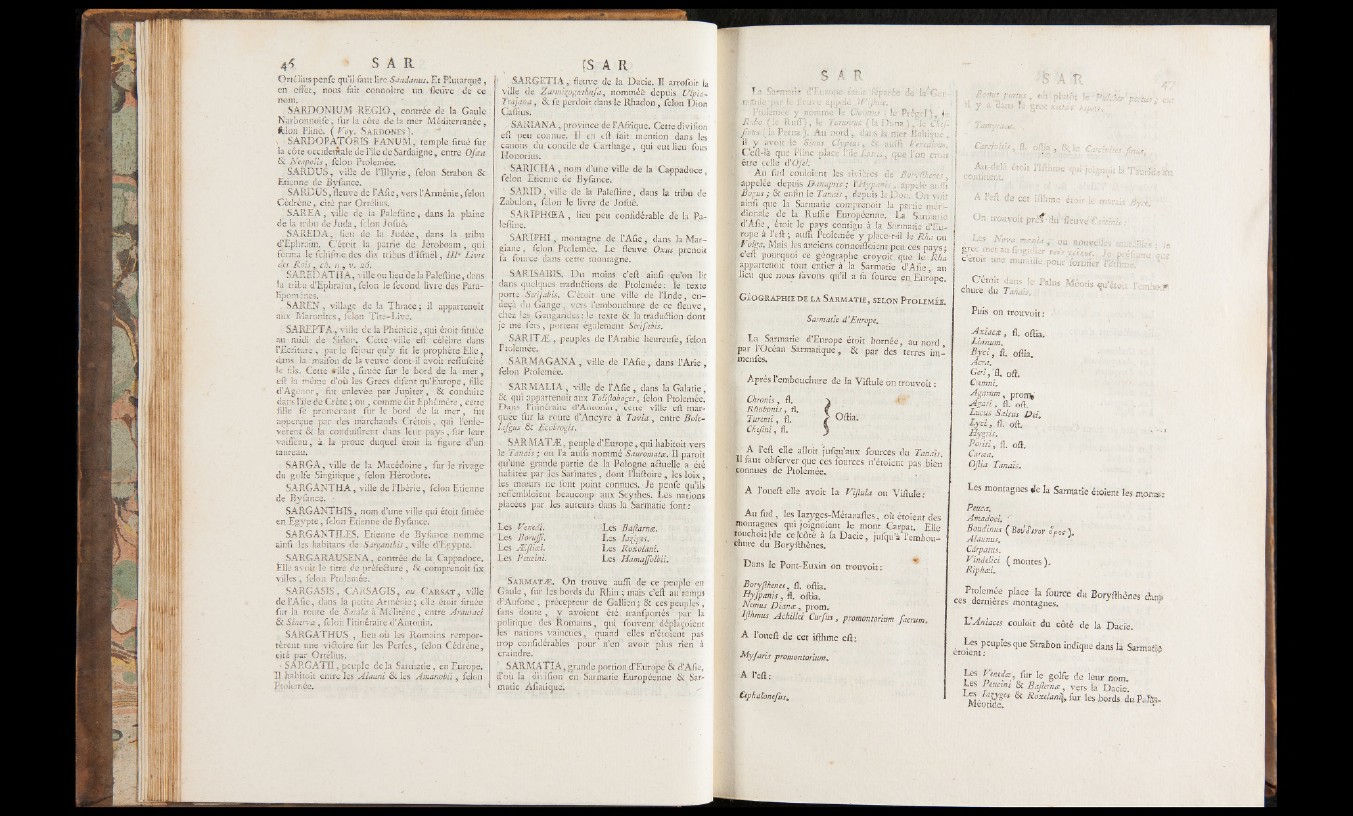 46 S A R
Ortélius pense qu'il faut lire Sandanus. Et Plutarque,
en effet, nous fait connoître un fleuve de ce
nom.
SARDONIUM REGIO, contrée de la Gaule
Narbonnoise, sur la côte de la mer Méditerranée,
selon Pline. (Voy. SARDONES).
SARDOPATORIS FANUM, temple situé sur
la côte occidentale de l'île de Sardaigne, entre Osaa
& Neapolis, selon Ptolemée.
SARDUS, ville de l'Illyrie, selon Strabon &
Etienne de Bysance.
SARDUS, fleuve de l'Asie, vers l'Arménie, selon
Cédrène, cité par Ortélius.
SAREA, ville de la Palestine, dans la plaine
de la tribu de Juda, selon Josué.
SAREDA, lieu de la Judée, dans la tribu
d'Ephraïm. C'étoit la patrie de Jéroboam, qui
forma le schisme des dix tribus d'Israël, IIIe Livre
des Rois, ch. 11, v. 26.
SAREDATHA, ville ou lieu de la Palestine, dans
la tribu d'Ephraïm, selon le second livre des Para-
lipomènes.
SAREN, village de la Thrace; il appartenoit
aux Maronites, selon Tite-Live.
SAREPTA, ville de la Phénicie, qui étoit située
au midi de Sidon. Cette ville est célèbre dans
l'Ecriture, par le séjour qu'y fit le prophète Elie,
dans la maison de la veuve dont il avoit ressuscité
le fils. Cette ville, située sur le bord de la mer,
est la même d'où les Grecs disent qu'Europe, fille
d'Agenor, fut enlevée par Jupiter, & conduite
dans l'île de Crète; ou, comme dit Ephémère, cette
fille se promenant sur le bord de la mer, fut
apperçue par des marchands Crétois, qui l'enle-
vèrent & la conduisirent dans leur pays, sur leur
vaisseau, à la proue duquel étoit la figure d'un
taureau.
SARGA, ville de la Macédoine, sur le rivage
du golfe Singitique, selon Hérodote.
SARGANTHA, ville de l'Ibérie, selon Etienne
de Bysance.
SARGANTHIS, nom d'une ville qui étoit située
en Egypte, selon Etienne de Bysance.
SARGANTILES. Etienne de Bysance nomme
ainsi les habitans de Sarganthis, ville d'Egypte.
SARGARAUSENA, contrée de la Cappadoce.
Elle avoit le titre de préfecture, & comprenoit six
villes, selon Ptolemée.
SARGASIS, CARSAGIS, ou CARSAT, ville
de l'Asie, dans la petite Arménie; elle étoit située
sur la route de Satala à Mélitène, entre Arauraci
& Sinervæ, selon l'itinéraire d'Antonin.
SARGATHUS, lieu où les Romains rempor-
tèrent une victoire sur les Perses, selon Cédrène,
cité par Ortélius.
SARGATII, peuple de la Sarmatie, en Europe.
Il habitoit entre les Alauni & les Amanobii, selon
Ptolemée.
S A R
SARGETIA, fleuve de la Dacie. Il arrosoit la
ville de Zarmizogethusa, nommée depuis Ulpia-
Trajana, & se perdoit dans le Rhadon, selon Dion
Cassius.
SARIANA, province de l'Afrique. Cette division
est peu connue. Il en est fait mention dans les
canons du concile de Carthage, qui eut lieu sous
Honorius.
SARICHA, nom d'une ville de la Cappadoce,
selon Etienne de Bysance.
SARID, ville de la Palestine, dans la tribu de
Zabulon, selon le livre de Josué.
SARIPHŒA, lieu peu considérable de la Pa-
lestine.
SARIPHI, montagne de l'Asie, dans la Mar-
giane, selon Ptolemée. Le fleuve Oxus prenoit
sa source dans cette montagne.
SARISABIS. Du moins c'est ainsi qu'on lit
dans quelques traductions de Ptolemée: le texte
porte Sarisabis. C'étoit une ville de l'Inde, en-
deçà du Gange, vers l'embouchure de ce fleuve,
chez les Gangarides: le texte & la traduction dont
je me sers, portent également Sarisabis.
SARITÆ, peuples de l'Arabie heureuse, selon
Ptolemée.
SARMAGANA, ville de l'Asie, dans l'Arie,
selon Ptolemée.
SARMALIA, ville de l'Asie, dans la Galatie,
& qui appartenoit aux Tolistoboges, selon Ptolemée.
Dans l'itinéraire d'Antonin, cette ville est mar-
quée sur la route d'Ancyre à Tavia, entre Bole-
lasgus & Ecobrogis.
SARMATÆ, peuple d'Europe, qui habitoit vers
le Tanaïs; on l'a aussi nommé Sauromatæ. Il paroît
qu'une grande partie de la Pologne actuelle a été
habitée par les Sarmates, dont l'histoire, les loix,
les mœurs ne sont point connues. Je pense qu'ils
ressembloient beaucoup aux Scythes. Les nations
placées par les auteurs dans la Sarmatie sont:
Les Venedi. Les Bastarnæ.
Les Borussi. Les Iazyges.
Les Æsthæi. Les Roxolani.
Les Peucini. Les Hamaxobii.
SARMATÆ. On trouve aussi de ce peuple en
Gaule, sur les bords du Rhin; mais c'est au temps
d'Ausone, précepteur de Gallien; & ces peuples,
sans doute, y avoient été transportés par la
politique des Romains, qui souvent déplaçoient
les nations vaincues, quand elles n'étoient pas
trop considérables pour n'en avoir plus rien à
craindre.
SARMATIA, grande portion d'Europe & d'Asie,
d'où la division en Sarmatie Européenne & Sar-
matie Asiatique.
S A R
La Sarmatie d'Europe étoit séparée de la Ger-
manie par le fleuve appelé Vistula.
Ptolemée y nomme le Chronus (le Prégel), le
Rubo (le Russ), le Turuntus (la Duna), le Chesinus
(la Perna). Au nord, dans la mer Baltique,
il y avoit le Sinus Clypius, & aussi
C'est-là que Pline place l'île Latris, que l'on croit
être celle d'Osel.
Au sud couloient les rivières de Borysthenes,
appelée depuis Danapris; l'Hypanis, appelé aussi
Bogus; & enfin le Tanaïs, depuis le Don. On voit
ainsi que la Sarmatie comprenoit la partie méri-
dionale de la Russie Européenne. La Sarmatie
d'Asie, étoit le pays contigu à la Sarmatie d'Eu-
rope à l'est; aussi Ptolemée y place-t-il le Rha ou
Volga. Mais les anciens connoissoient peu ces pays;
c'est pourquoi ce géographe croyoit que le Rha
appartenoit tout entier à la Sarmatie d'Asie, au
lieu que nous savons qu'il a sa source en Europe.
GÉOGRAPHIE DE LA SARMATIE, SELON PTOLEMÉE.
Sarmatie d'Europe.
La Sarmatie d'Europe étoit bornée, au nord,
par l'Océan Sarmatique, & par des terres im-
menses.
Après l'embouchure de la Vistule on trouvoit:
Chronis, fl.
Rhubonis, fl.
Turunti, fl.
Chesini, fl.
Ostia.
A l'est elle alloit jusqu'aux sources du Tanaïs.
Il faut observer que ces sources n'étoient pas bien
connues de Ptolemée.
A l'ouest elle avoit la Vistula ou Vistule:
Au sud, les Iazyges-Métanastes, où étoient des
montagnes qui joignoient le mont Carpat. Elle
touchoit de ce côté à la Dacie, jusqu'à l'embou-
chure du Borysthènes.
Dans le Pont-Euxin on trouvoit:
Borysthenes, fl. ostia.
Hyspanis, fl. ostia.
Nemus Dianæ, prom.
Isthmus Achillei Cursus, promontorium sacrum.
A l'ouest de cet isthme est:
Mysaris promontorium.
A l'est:
Cephalonesus.
S A R 47
Bonus portus, ou plutôt le Pulcher portus; car
il y a dans le grec
Tamyrace.
Carcinitis, fl. ostia, & le Carcinites sinus.
Au-delà étoit l'isthme qui joignoit la Tauride au
continent.
A l'est de cet isthme étoit le marais Byce.
On trouvoit près du fleuve Carcinit
Les Nova mœnia, ou nouvelles murailles: le
grec met au singulier Je présume que
c'étoit une muraille pour fortifier l'isthme.
C'étoit dans le Palus Méotis qu'étoit l'embou-
chure du Tanaïs.
Puis on trouvoit:
Axiacæ, fl. ostia.
Lianum.
Byci, fl. ostia.
Acra.
Geri, fl. ost.
Cnemni.
Agarum, prom.
Agari, fl. ost.
Lucus Saltus Dei.
Lyci, fl. ost.
Hygris.
Poriti, fl. ost.
Caræa.
Ostia Tanaïs.
Les montagnes de la Sarmatie étoient les monts:
Peuca.
Amadoci.
Boudinus
Alaunus.
Carpatus.
Vindelici (montes).
Riphæi.
Ptolemée place la source du Borysthènes dans
ces dernières montagnes.
L'Axiaces couloit du côté de la Dacie.
Les peuples que Strabon indique dans la Sarmatie
étoient:
Les Venedæ, sur le golfe de leur nom.
Les Peucini & Bastarnæ, vers la Dacie.
Les Iazyges & Roxolani, sur les bords du Palus-
Méotide.